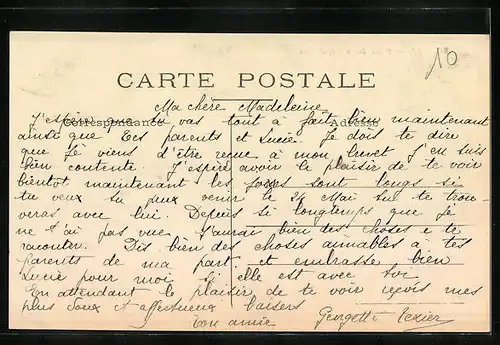 10
CARTE POSTALE
Ma chère Madeleine
Correspondance
Adresse
J'espère que tu vas tout à fait bien maintenant
ainsi que tes parents et Lucie. Je dois te dire
que je viens d'être reçue à mon brevet j'en suis
bien contente. J'espère avoir le plaisir de te voir
bientôt maintenant les jours sont longs si
tu veux tu peux venir le 24 Mai tu te trou-
veras avec lui. Depuis si longtemps que je
ne t'ai pas vue j'aurai bien des choses a te
raconter. Dis bien des choses aimables à tes
parents de ma part et embrasse bien
Lucie pour moi si elle est avec toi
En attendant le plaisir de te voir reçois mes
plus doux et affectueux baisers
Ton amie Georgette Texier